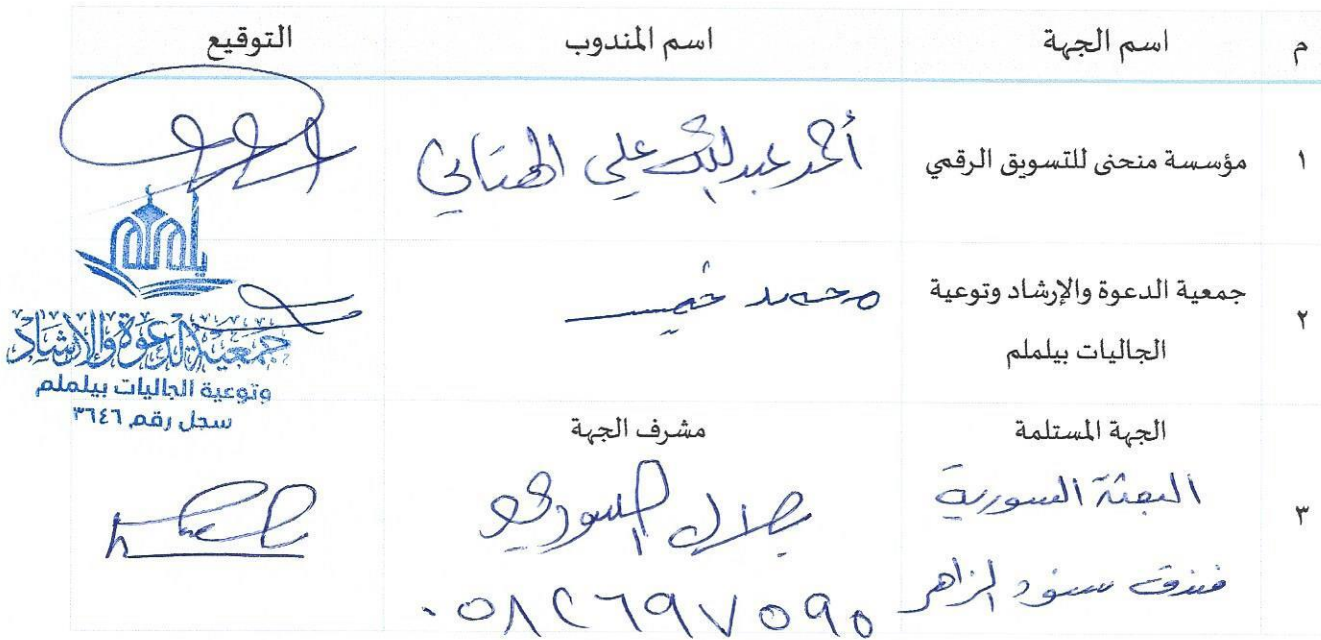 م اسم الجهة اسم المندوب التوقيع
١ مؤسسة منحنى للتسويق الرقمي أحمد عبدالله علي الهتاني
٢ جمعية الدعوة والإرشاد وتوعية الجاليات بيلملم محمد خميس
جمعية الدعوة والإرشاد
وتوعية الجاليات بيلملم
سجل رقم ٣٦٤٦
الجهة المستلمة مشرف الجهة
٣ البعثة السورية بلال السوري
فندق سنود الزاهر ٠٥٨٢٦٩٧٥٩٥